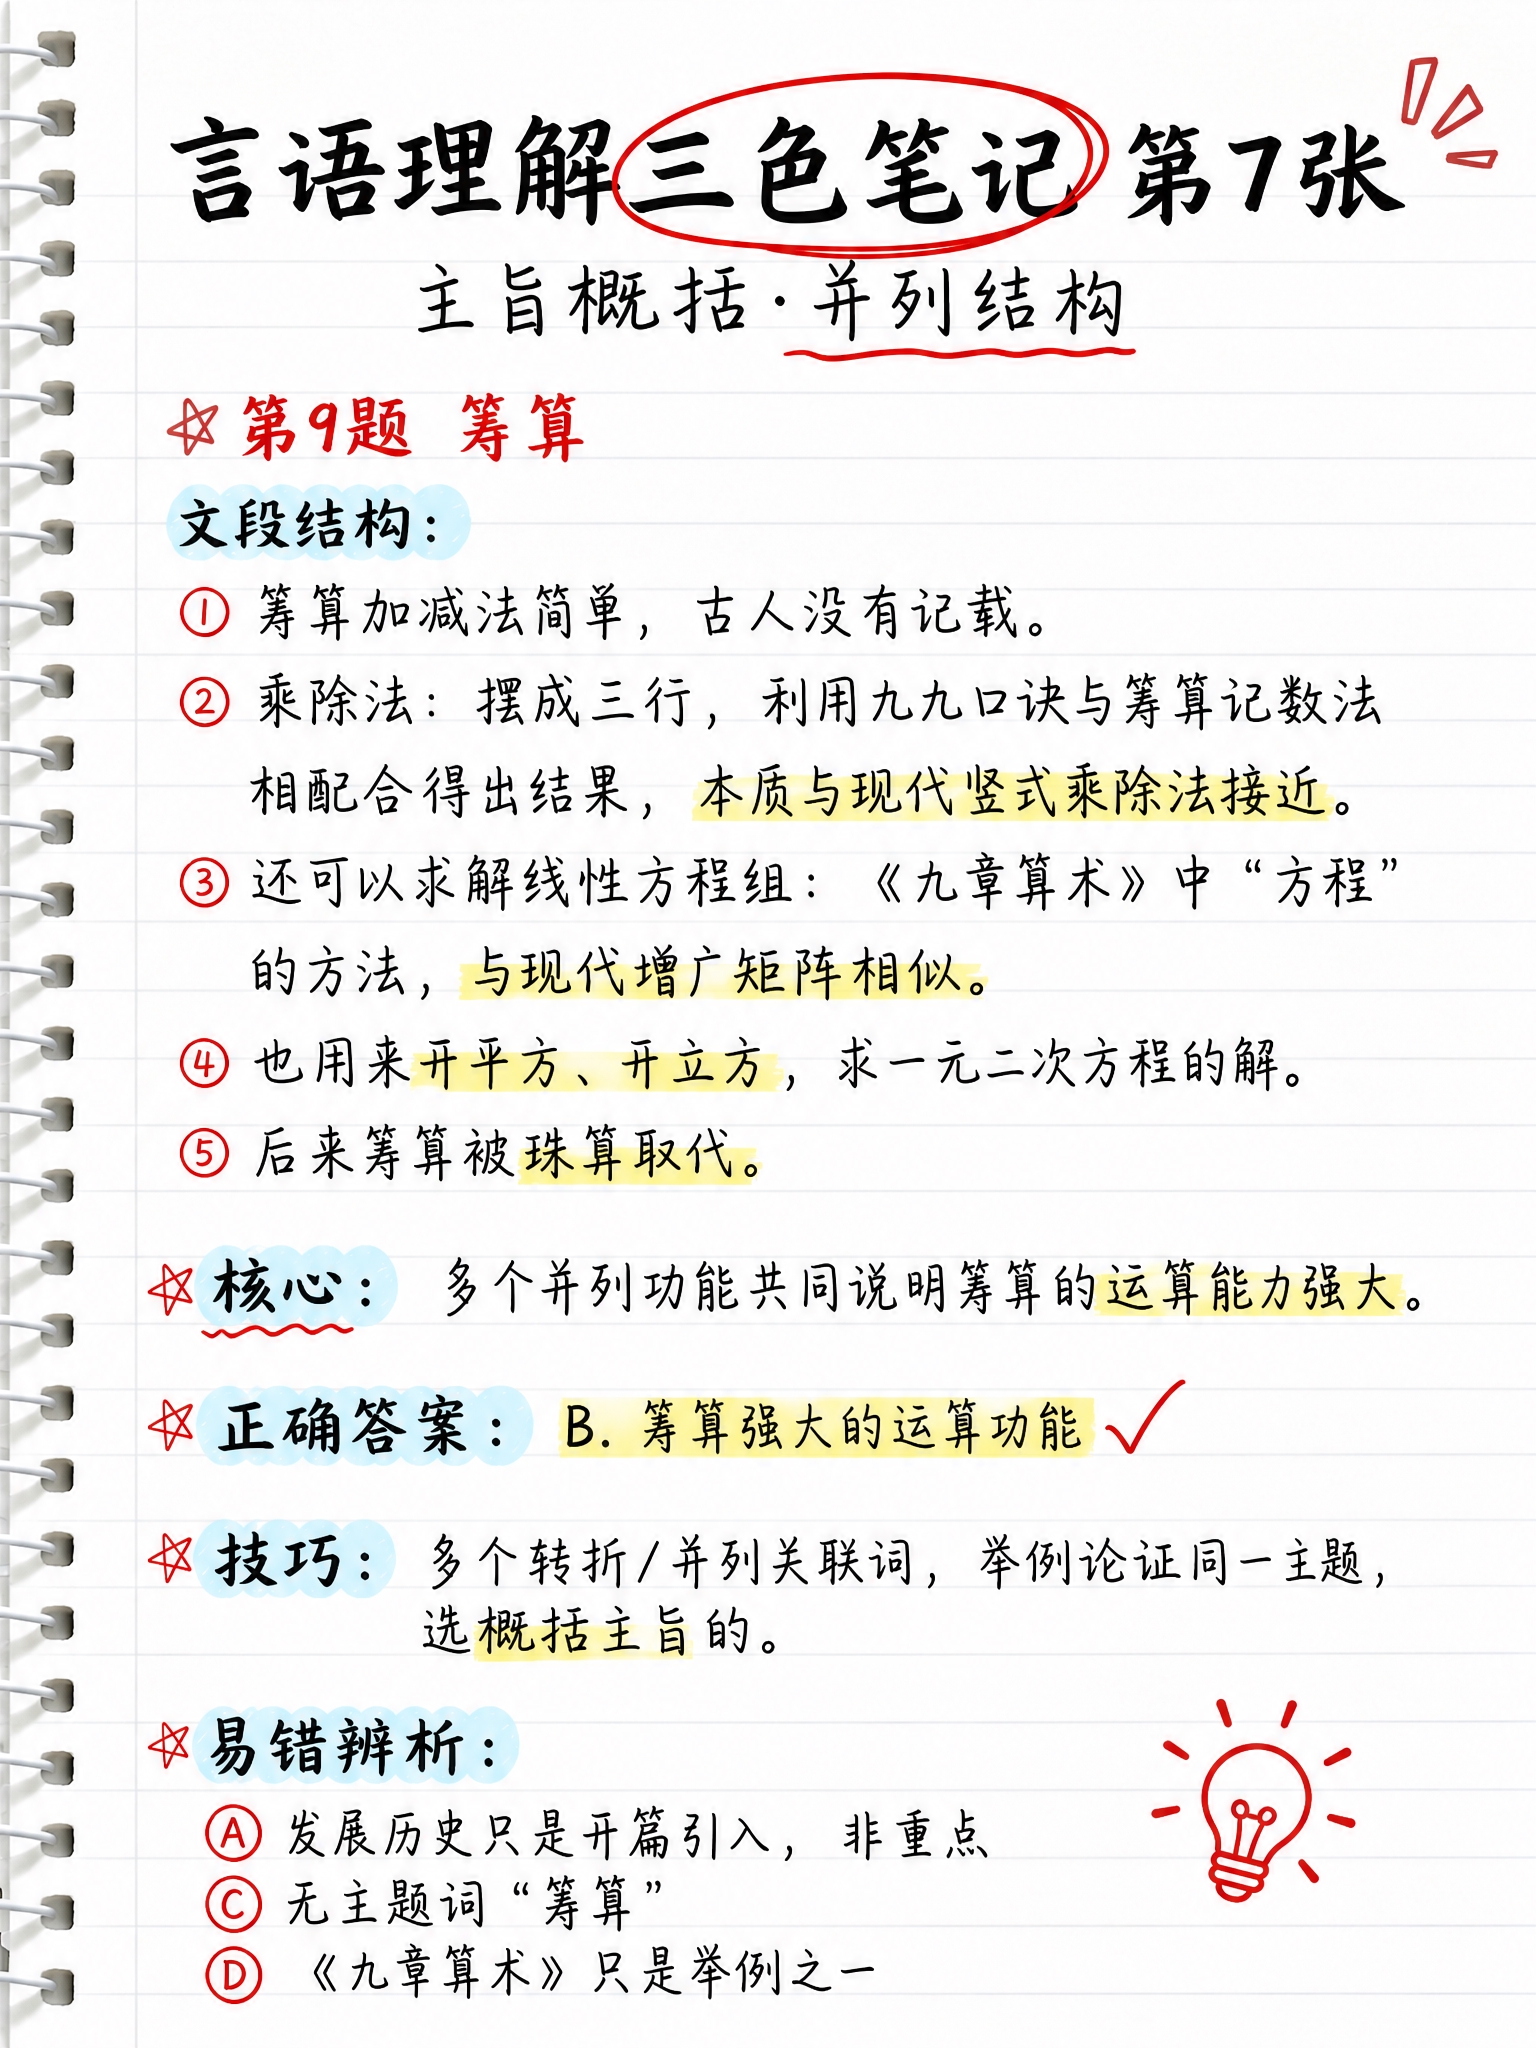 言语理解三色笔记 第7张
主旨概括·并列结构
第9题 筹算
文段结构：
① 筹算加减法简单，古人没有记载。
② 乘除法：摆成三行，利用九九口诀与筹算记数法
相配合得出结果，本质与现代竖式乘除法接近。
③ 还可以求解线性方程组：《九章算术》中“方程”
的方法，与现代增广矩阵相似。
④ 也用来开平方、开立方，求一元二次方程的解。
⑤ 后来筹算被珠算取代。
核心： 多个并列功能共同说明筹算的运算能力强大。
正确答案： B. 筹算强大的运算功能
技巧： 多个转折/并列关联词，举例论证同一主题，
选概括主旨的。
易错辨析：
Ⓐ 发展历史只是开篇引入，非重点
Ⓒ 无主题词“筹算”
Ⓓ 《九章算术》只是举例之一